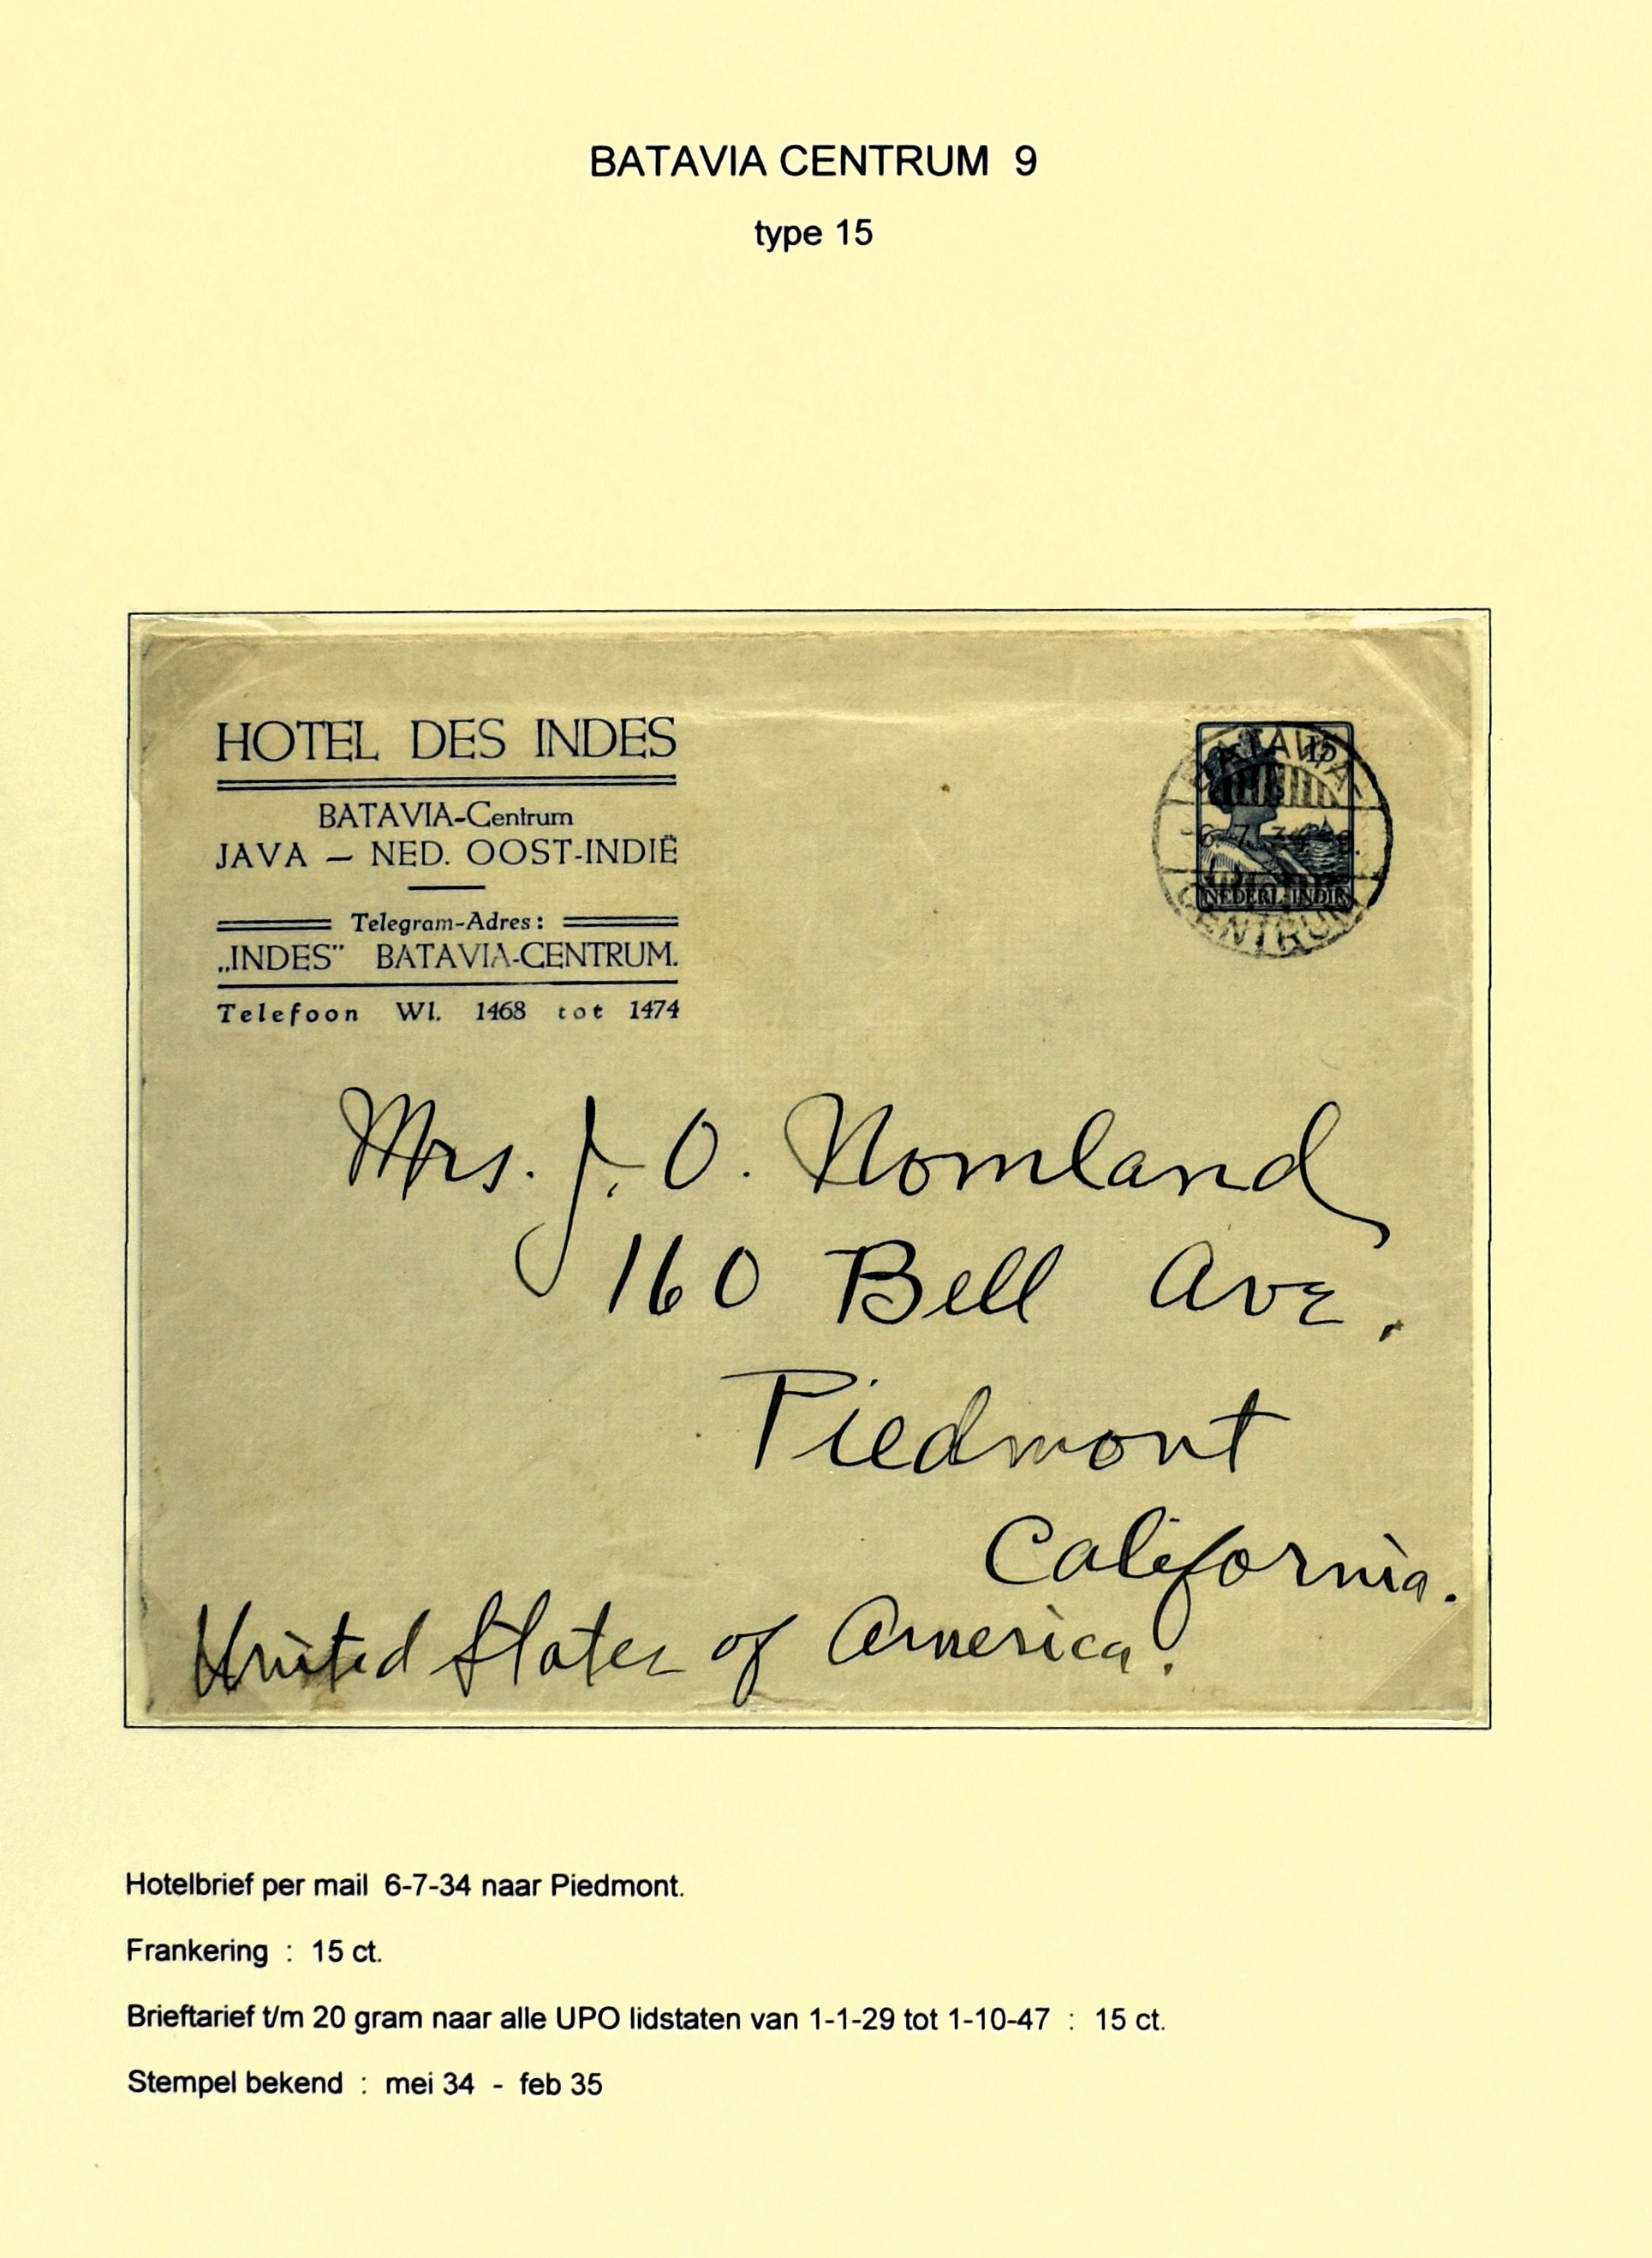 BATAVIA CENTRUM 9
type 15
HOTEL DES INDES
BATAVIA-Centrum
JAVA — NED. OOST-INDIË
Telegram-Adres:
„INDES” BATAVIA-CENTRUM.
Telefoon Wl. 1468 tot 1474
BATAVIA
15
-6.7.34
NEDERL. INDIE
CENTRUM
Mrs. J. O. Nomland
160 Bell Ave.
Piedmont
California.
United States of America.
Hotelbrief per mail 6-7-34 naar Piedmont.
Frankering : 15 ct.
Brieftarief t/m 20 gram naar alle UPO lidstaten van 1-1-29 tot 1-10-47 : 15 ct.
Stempel bekend : mei 34 - feb 35